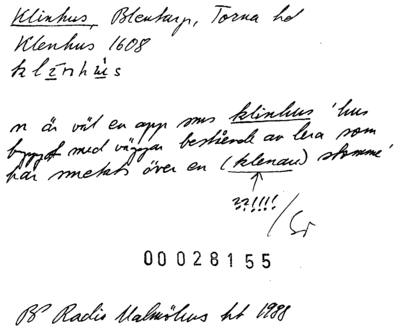 Klinhus, Blentarp, Torna hd
Klenhus 1608
klinhus
n är väl en app sms klinhus 'hus
byggt med väggar bestående av lera som
har smetats över en (klenau) stomme'
??!!!!
00028155
BP Radio Malmöhus ht 1988